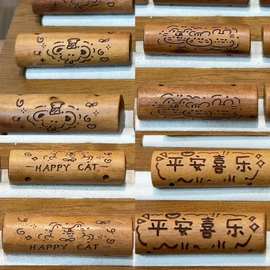 HAPPY CAT
平安喜乐
HAPPY CAT
平安喜乐